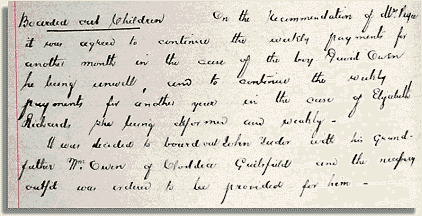 Boarded out Children On the recommendation of Mr
it was agreed to continue the weekly payments for
another month in the case of the boy David Owen
he being unwell, and to continue the weekly
payments for another year in the case of Elizabeth
Richards she being deformed and weakly -
It was decided to board out John Tudor with his Grand-
father Wm Owen of Guilsfield and the necessary
outfit was ordered to be provided for him -